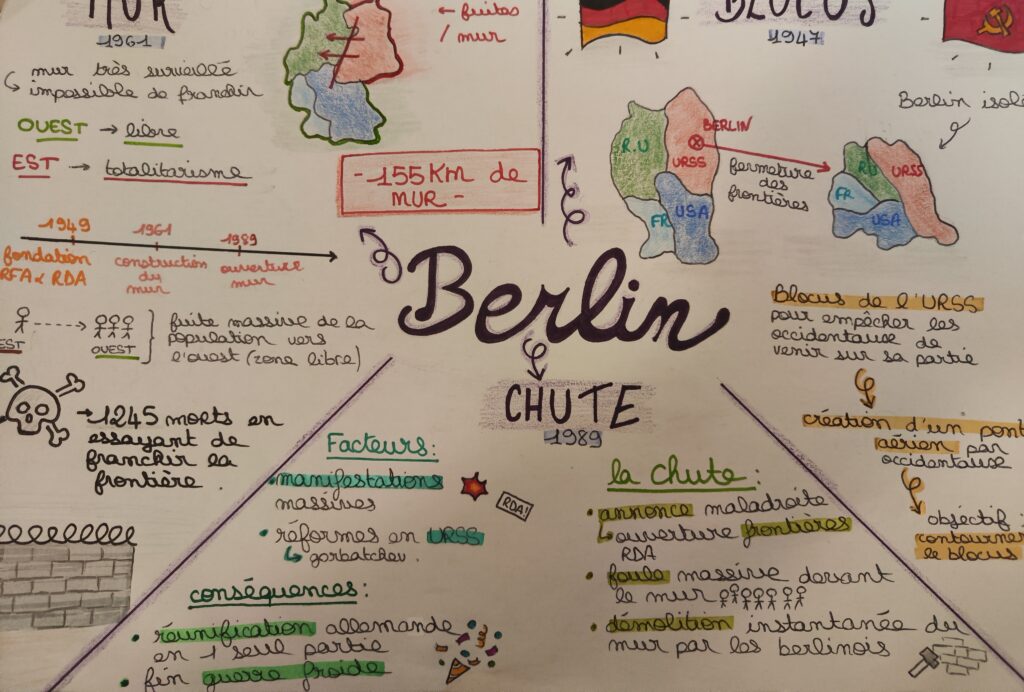 MUR
1961
mur très surveillé
impossible de franchir
OUEST → libre
EST → totalitarisme
← fuites
/ mur
-155 Km de
MUR -
1949
1961
1989
fondation
RFA & RDA
construction
du
mur
ouverture
mur
EST
OUEST
fuite massive de la
population vers
l'ouest (zone libre)
→ 1245 morts en
essayant de
franchir la
frontière.
BLOCUS
1947
Berlin isolé
R.U
BERLIN
URSS
FR
USA
fermeture
des
frontières
RU
URSS
FR
USA
Blocus de l'URSS
pour empêcher les
occidentaux de
venir sur sa partie
création d'un pont
aérien par
occidentaux
objectif :
contourner
le blocus
Berlin
CHUTE
1989
Facteurs:
• manifestations
massives
RDA!
• réformes en URSS
gorbatchev.
conséquences:
• réunification allemande
en 1 seul partie
• fin guerre froide
la chute:
• annonce maladroite
ouverture frontières
RDA
• foule massive devant
le mur
• démolition instantanée du
mur par les berlinois